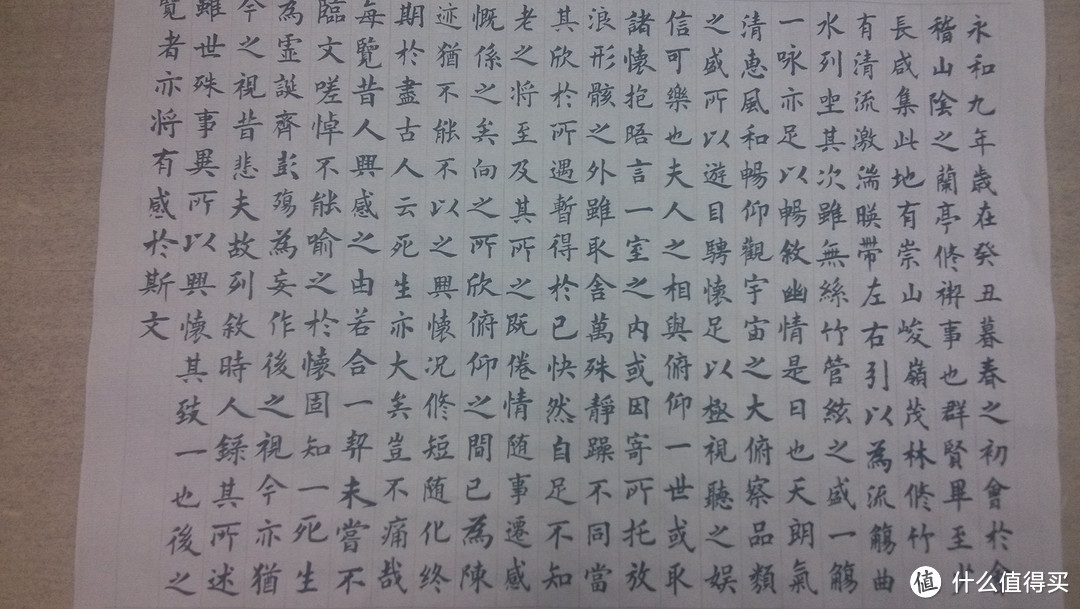 永和九年歲在癸丑暮春之初會於
稽山陰之蘭亭修禊事也群賢畢至
長咸集此地有崇山峻嶺茂林修竹
有清流激湍暎帶左右引以為流觴曲
水列坐其次雖無絲竹管絃之盛一觴
一咏亦足以暢敘幽情是日也天朗氣
清惠風和暢仰觀宇宙之大俯察品類
之盛所以遊目騁懷足以極視聽之娛
信可樂也夫人之相與俯仰一世或取
諸懷抱晤言一室之內或因寄所托放
浪形骸之外雖取舍萬殊靜躁不同當
其欣於所遇暫得於己快然自足不知
老之將至及其所之既倦情随事遷感
慨係之矣向之所欣俯仰之間已為陳
迹猶不能不以之興懷况修短随化終
期於盡古人云死生亦大矣豈不痛哉
每覽昔人興感之由若合一契未嘗不
臨文嗟悼不能喻之於懷固知一死生
為虛誕齊彭殤為妄作後之視今亦猶
今之視昔悲夫故列敘時人錄其所述
雖世殊事異所以興懷其致一也後之
覽者亦將有感於斯文
值 什么值得买